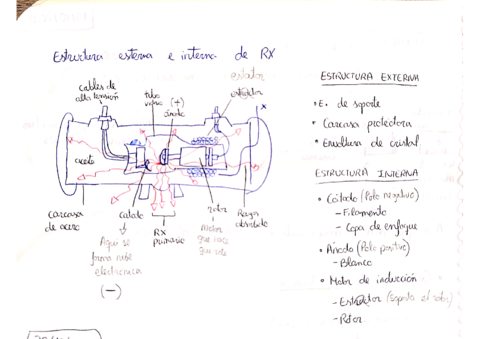 Estructura externa e interna de RX
cables de
alta tensión
tubo
vacío
(+)
ánodo
estator
x
aceite
carcasa
de acero
catodo
Aquí se
forma nube
electrónica
(-)
RX
primario
rotor
motor
que hace
que rote
Rayos
absorbido
ESTRUCTURA EXTERNA
• E. de soporte
• Carcasa protectora
• Envoltura de cristal
ESTRUCTURA INTERNA
• Cátodo (Polo negativo)
- Filamento
- Copa de enfoque
• Ánodo (Polo positivo)
- Blanco
• Motor de inducción
- Estator (Espira el rotor)
- Rotor